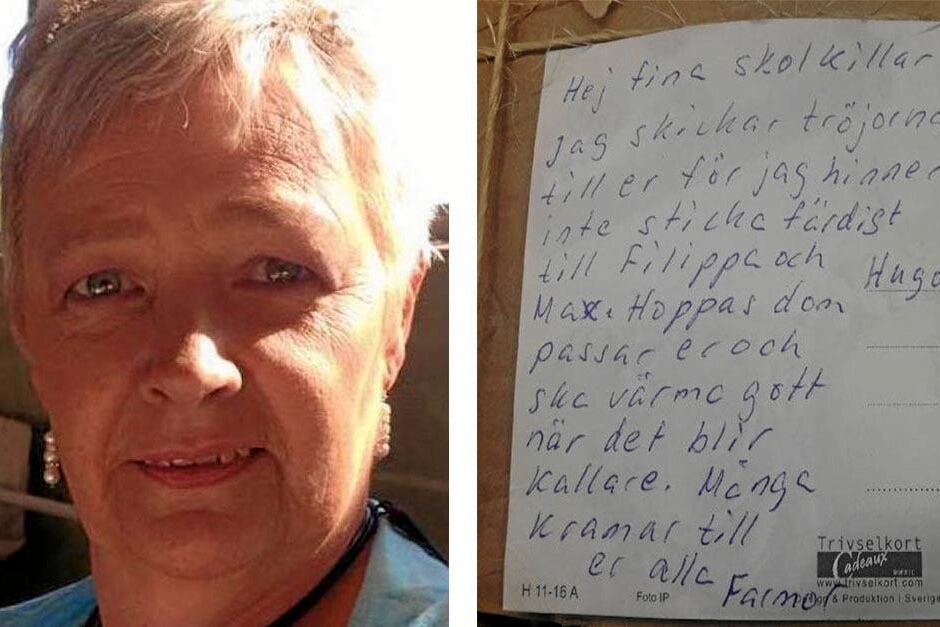 Hej fina skolkillar
jag skickar tröjorna
till er för jag hinner
inte sticka färdigt
till Filippa och
Max. Hoppas dom
passar er och
ska värma gott
när det blir
kallare. Många
kramar till
er alla
Farmor
Hugo
Trivselkort
Cadeaux
www.trivselkort.com
H 11-16 A
Foto IP
& Produktion i Sverige